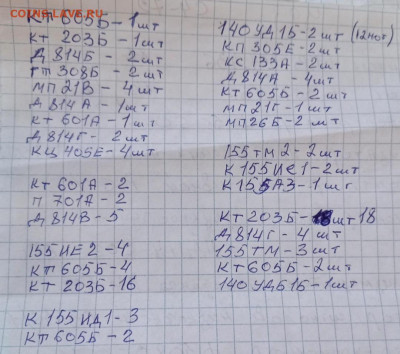 СОИН-САУК.RU
КТ 605Б - 1шт
КТ 203Б - 1шт
Д 814Б - 2шт
ГТ 308Б - 2шт
МП 21В - 4шт
Д 814А - 1шт
КТ 601А - 1шт
Д 814Г - 2шт
КЦ 405Е - 4шт
КТ 601А - 2
П 701А - 2
Д 814В - 5
155 ИЕ 2 - 4
КТ 605Б - 4
КТ 203Б - 16
К 155 ИД1 - 3
КТ 605Б - 2
140 УД 1Б - 2шт (12 ног)
КП 305Е - 2шт
КС 133А - 2шт
Д 814А - 4шт
КТ 605Б - 2шт
МП 21Г - 1шт
МП 26Б - 2шт
155 ТМ 2 - 2шт
К 155 ИЕ1 - 2шт
К 155 ЛА3 - 1шт
КТ 203Б - шт 18
Д 814Г - 4шт
155 ТМ - 3шт
КТ 605Б - 2шт
140 УД Б1Б - 1шт